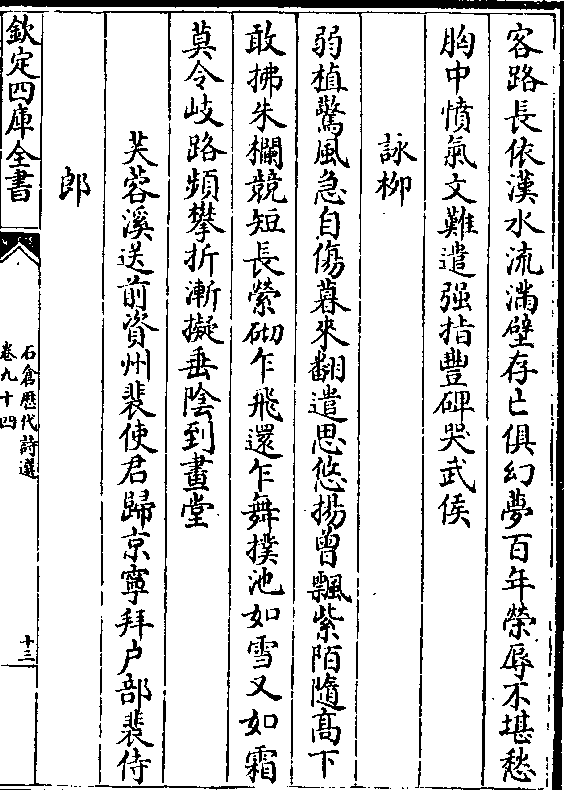 客路長依漢水流滿壁存亡俱幻夢百年榮辱不堪愁
胸中憤氣文難遣强指豐碑哭武侯
詠柳
弱植驚風急自傷暮來翻遣思悠揚曽飄紫陌隨高下
敢拂朱欄競短長縈砌乍飛還乍舞撲池如雪又如霜
莫令岐路頻攀折漸擬垂陰到畫堂
芙蓉溪送前資州裴使君歸京寧拜户部裴侍
郎
欽定四庫全書
石倉歴代詩選
卷九十四
十三